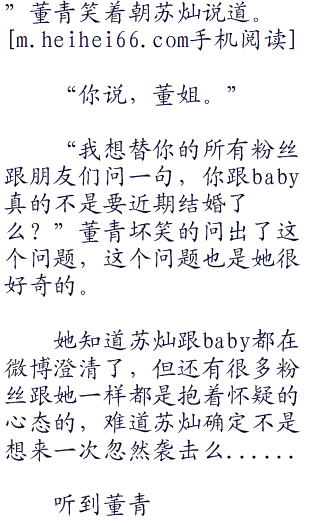 ”董青笑着朝苏灿说道。
[m.heihei66.com手机阅读]
“你说，董姐。”
“我想替你的所有粉丝
跟朋友们问一句，你跟baby
真的不是要近期结婚了
么？”董青坏笑的问出了这
个问题，这个问题也是她很
好奇的。
她知道苏灿跟baby都在
微博澄清了，但还有很多粉
丝跟她一样都是抱着怀疑的
心态的，难道苏灿确定不是
想来一次忽然袭击么......
听到董青